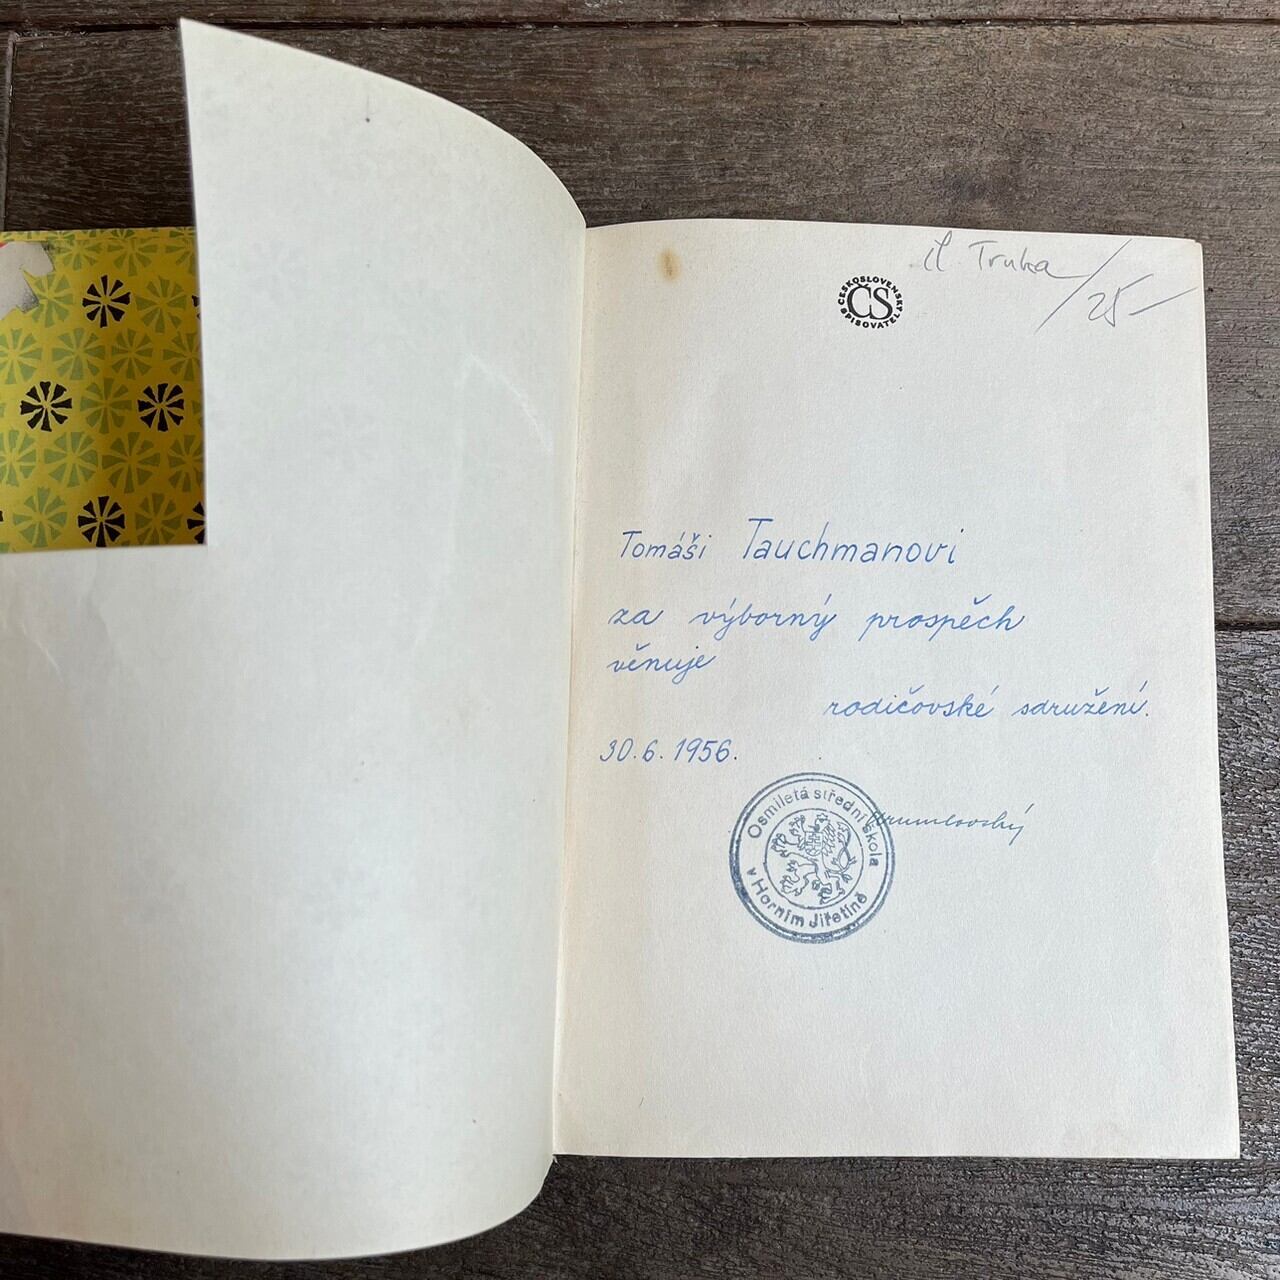 il. Trnka / 25-
ČESKOSLOVENSKÝ SPISOVATEL
ČS
Tomáši Tauchmanovi
za výborný prospěch
věnuje
rodičovské sdružení.
30.6.1956.
Krumlovský
Osmiletá střední škola
v Horním Jiřetíně